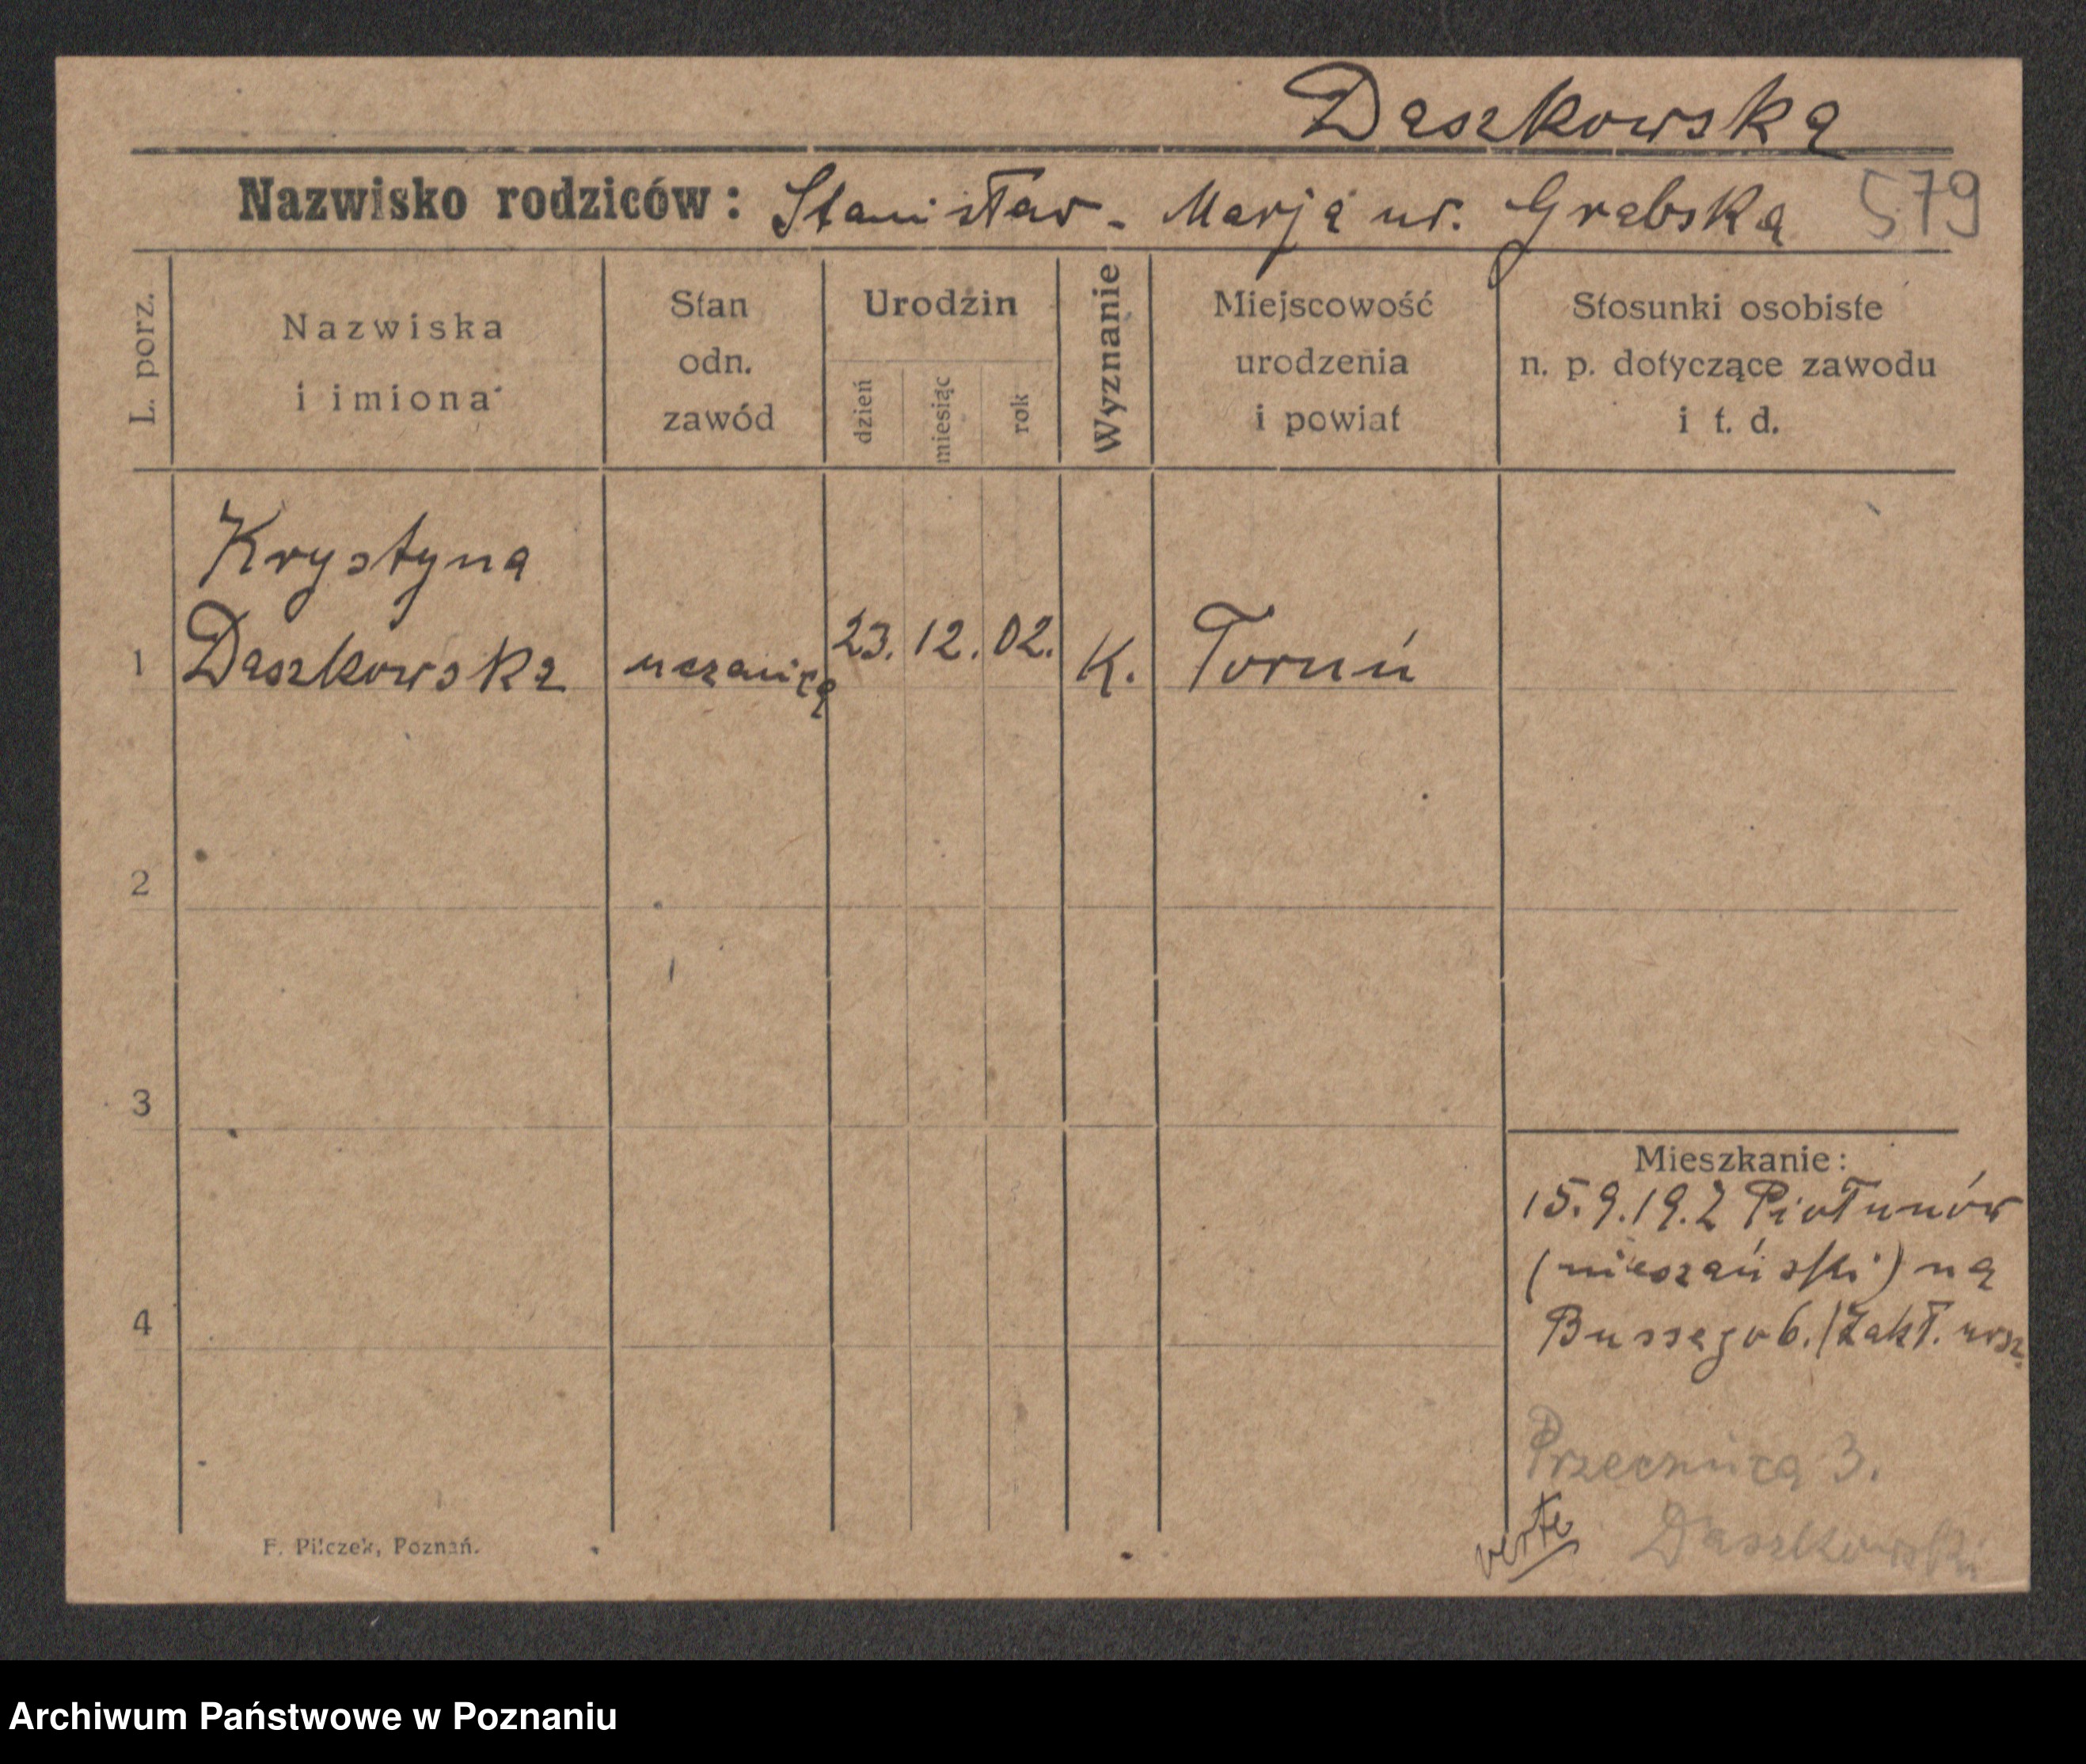 Daszkowska
Nazwisko rodziców: Stanisław - Marja ur. Grabska 579
L. porz.
Nazwiska
i imiona
Stan
odn.
zawód
Urodzin
dzień
miesiąc
rok
Wyznanie
Miejscowość
urodzenia
i powiat
Stosunki osobiste
n. p. dotyczące zawodu
i t. d.
Krystyna
1 Daszkowska uczenica 23. 12. 02. K. Toruń
2
3
4
Mieszkanie:
15.9.19. z Piołunów
(mieszański) na
Bussego 6. (Zakł. ursz.
Przecznica 3.
Daszkowski
verte
F. Pilczek, Poznań.
Archiwum Państwowe w Poznaniu